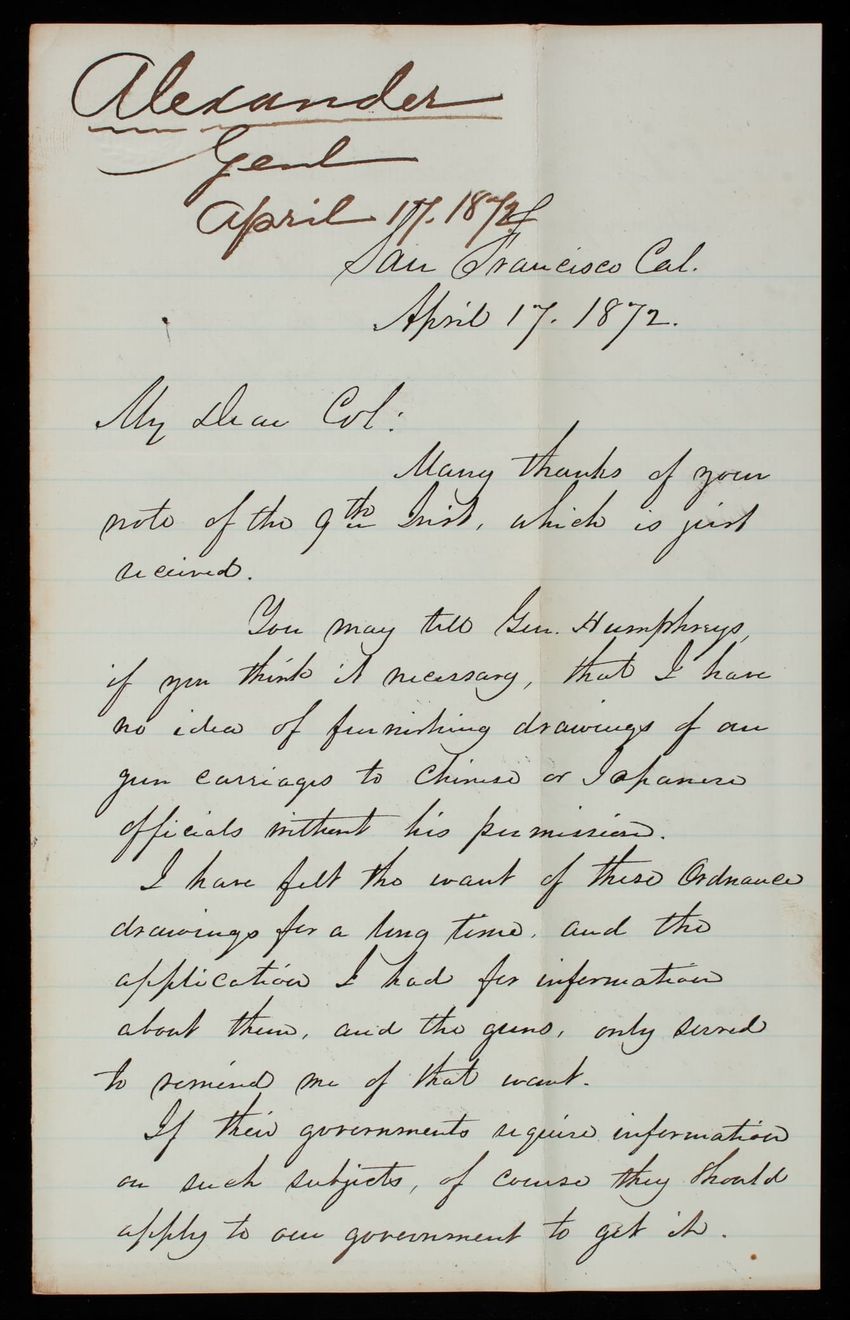 Alexander
Genl
April 17. 1872
San Francisco Cal.
April 17. 1872.
My Dear Col:
Many thanks of your
note of the 9th Inst, which is just
received.
You may tell Gen. Humphreys,
if you think it necessary, that I have
no idea of furnishing drawings of our
gun carriages to Chinese or Japanese
officials without his permission.
I have felt the want of these Ordnance
drawings for a long time, and the
application I had for information
about them, and the guns, only served
to remind me of that want.
If their governments require information
on such subjects, of course they should
apply to our government to get it.